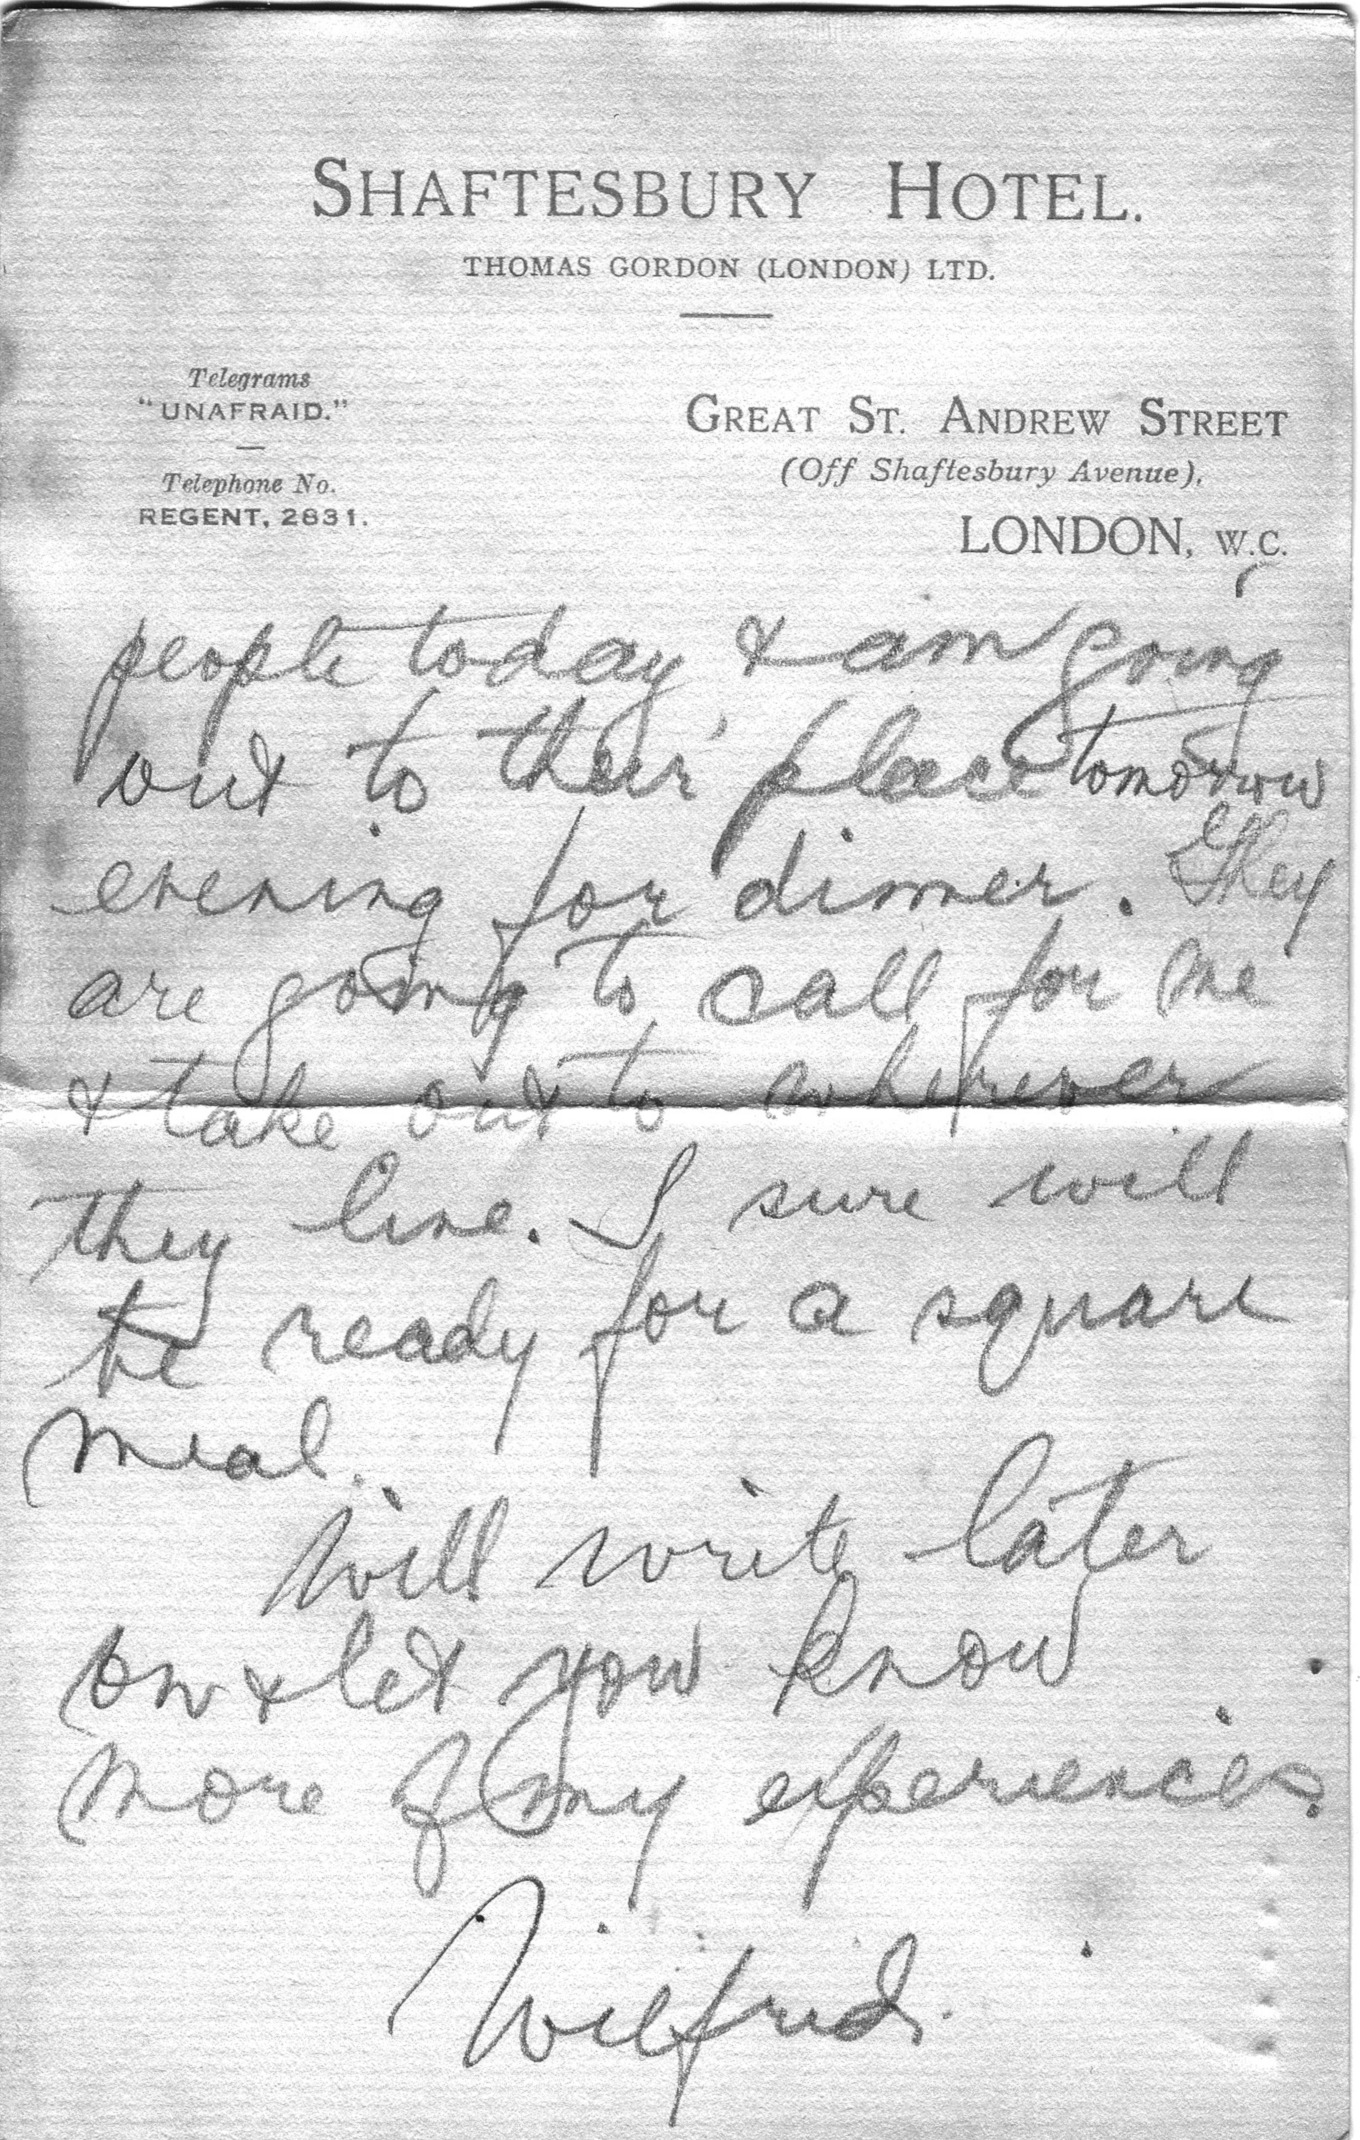 SHAFTESBURY HOTEL.
THOMAS GORDON (LONDON) LTD.
Telegrams
"UNAFRAID."
Telephone No.
REGENT, 2831.
GREAT ST. ANDREW STREET
(Off Shaftesbury Avenue),
LONDON, W.C.
people today & am going
out to their place tomorrow
evening for dinner. They
are going to call for me
& take out to wherever
they live. I sure will
be ready for a square
meal.
Will write later
on & let you know
more of my experiences.
Wilfrid.